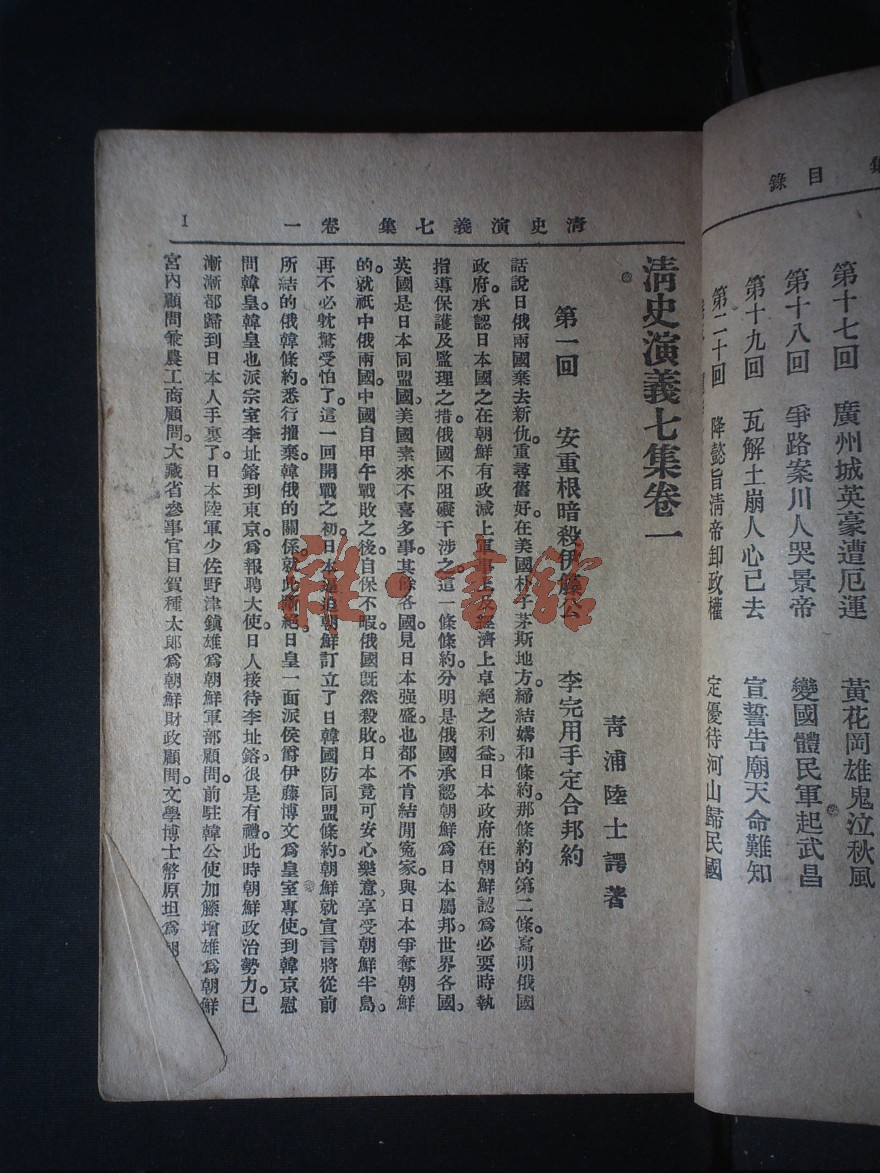 集 目錄
第十七回 廣州城英豪遭厄運 黃花岡雄鬼泣秋風
第十八回 爭路案川人哭景帝 變國體民軍起武昌
第十九回 瓦解土崩人心已去 宣誓告廟天命難知
第二十回 降懿旨清帝卸政權 定優待河山歸民國
清史演義七集 卷一 1
清史演義七集卷一
青浦陸士諤著
第一回 安重根暗殺伊藤公 李完用手定合邦約
話說日俄兩國棄去新仇重尋舊好。在美國朴子茅斯地方。締結媾和條約。那條約的第二條。寫明俄國
政府。承認日本國之在朝鮮有政減上軍事上及經濟上卓絕之利益。日本政府在朝鮮認爲必要時執
指導保護及監理之措俄國不阻礙干涉之。這一條條約。分明是俄國承認朝鮮爲日本屬邦世界各國。
英國是日本同盟國。美國素來不喜多事。其餘各國。見日本强盛也都不肯結閒寃家。與日本爭奪朝鮮
的。就祇中俄兩國。中國自甲午戰敗之後。自保不暇。俄國旣然殺敗。日本竟可安心樂意。享受朝鮮半島。
再不必躭驚受怕了。這一回開戰之初。日本逼迫朝鮮訂立了日韓國防同盟條約。朝鮮就宣言將從前
所結的俄韓條約。悉行摧棄。韓俄的關係。就此斷絕。日皇一面派侯爵伊藤博文爲皇室專使。到韓京慰
問韓皇。韓皇也派宗室李址鎔到東京。爲報聘大使。日人接待李址鎔。很是有禮。此時朝鮮政治勢力。已
漸漸都歸到日本人手裏了。日本陸軍少佐野津鎮雄爲朝鮮軍部顧問。前駐韓公使加藤增雄爲朝鮮
宮內顧問兼農工商顧問。大藏省參事官目賀種太郎爲朝鮮財政顧問。文學博士幣原坦爲
雜·書館